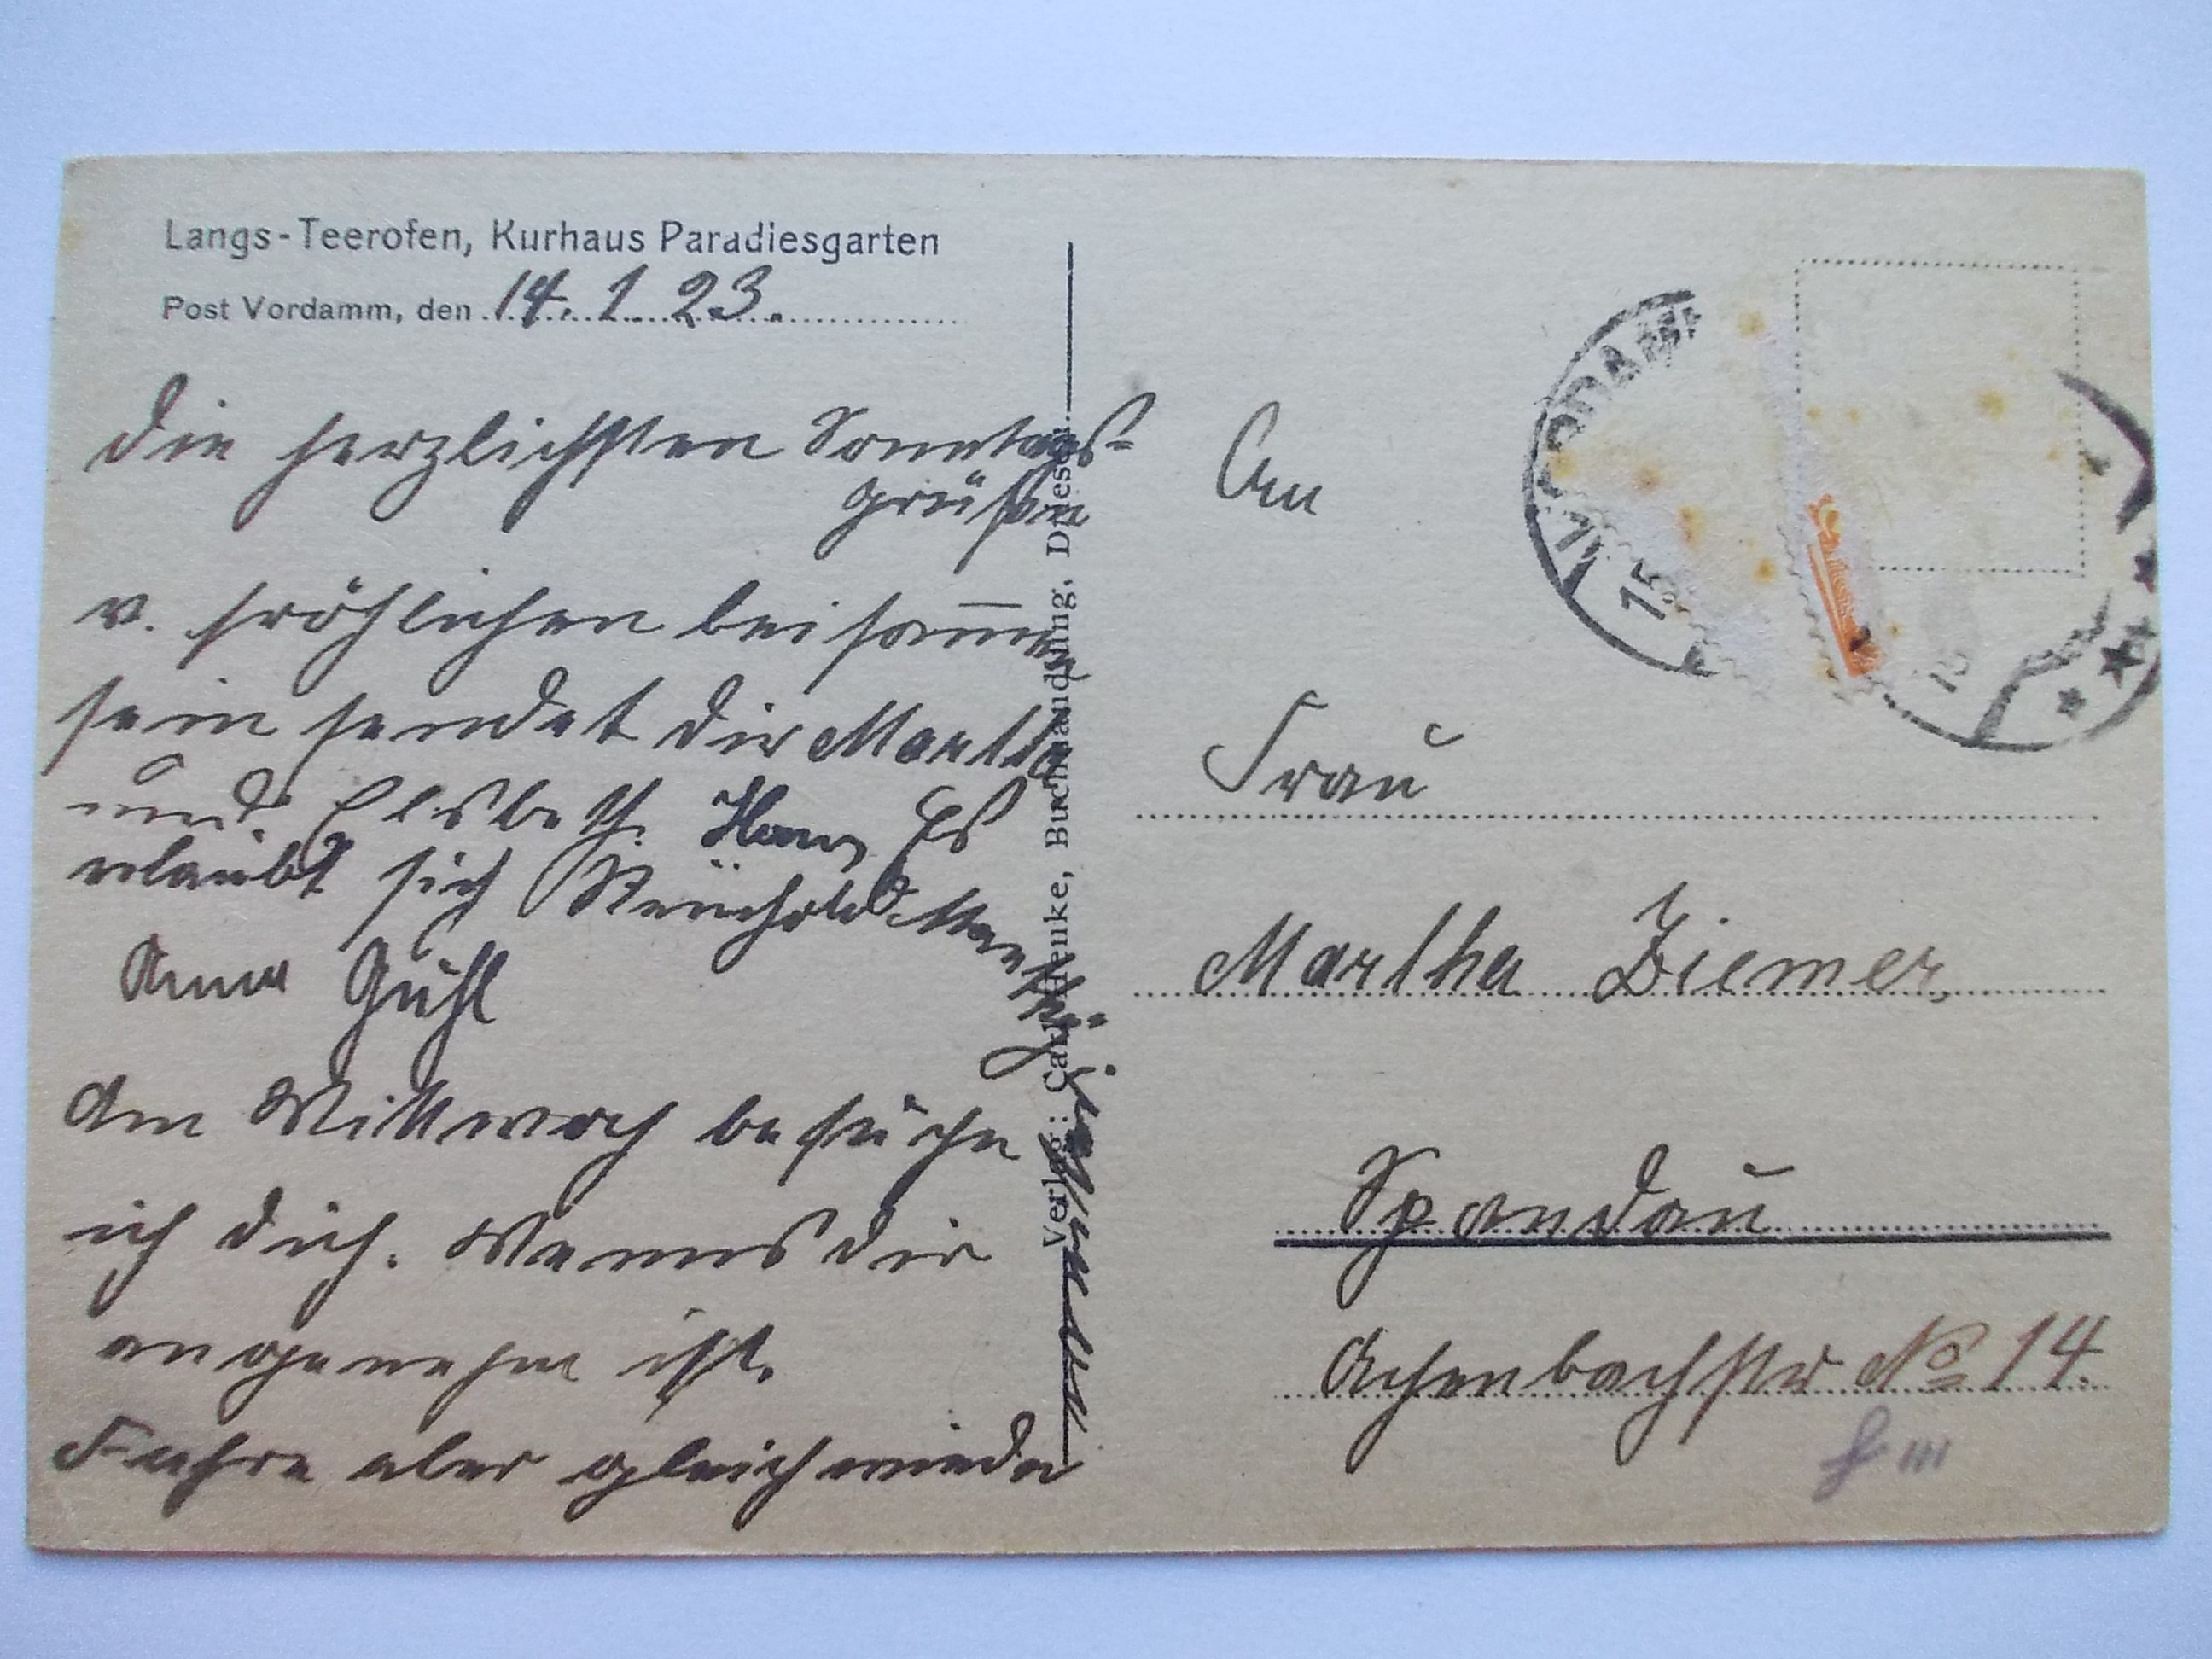 Langs-Teerofen, Kurhaus Paradiesgarten
Post Vordamm, den 14. 1. 23.
Die herzlichsten Sonntags-
grüßen
v. fröhlichen beisammen
sein sendet dir Martha
und Elsbeth. Hans Es
erlaubt sich
Anna Gühl
Am Mittwoch besuche
ich dich. Wenns dir
angenehm ist.
Fahre aber gleich wieder
Verlag: Buchhandlung, Driesen
An
Frau
Martha Ziemer,
Spandau
Achenbachstr No 14.
III
VORDAMM
15